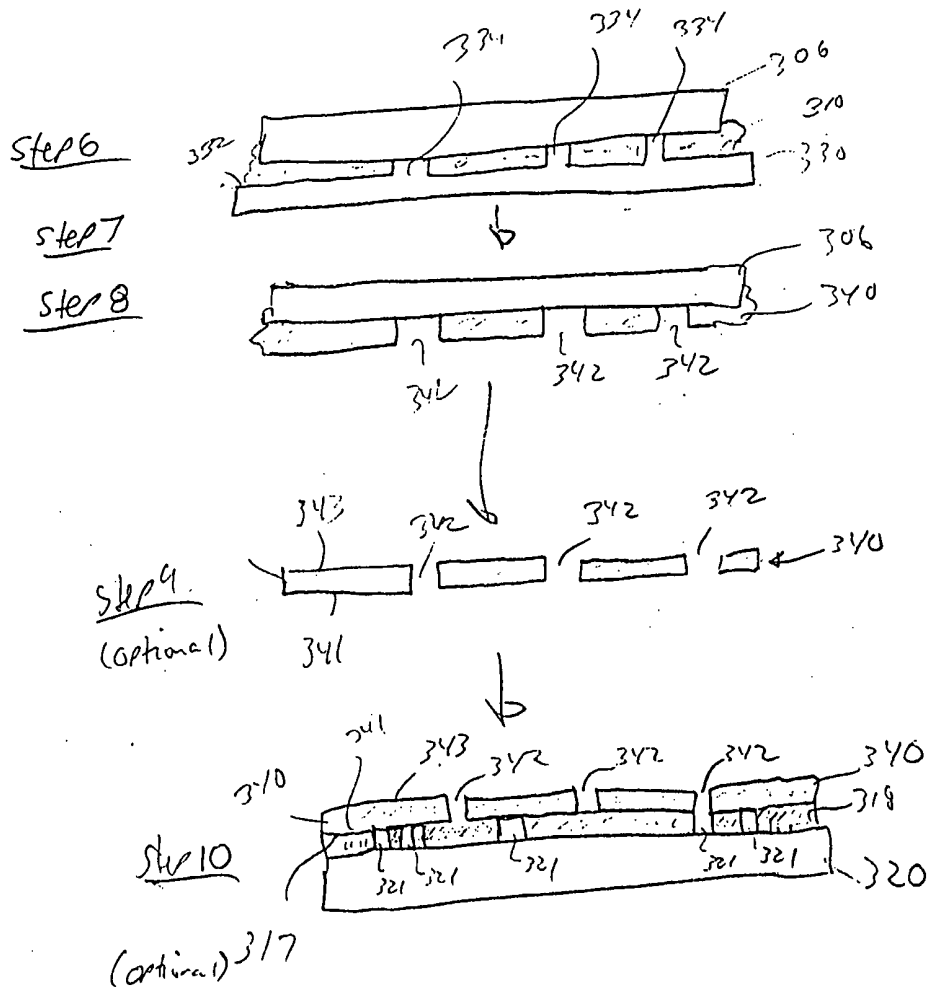 334 334 334
306
310
Step 6
332
330
Step 7
306
Step 8
340
342 342 342
343 342 342 342
340
Step 9.
(optional)
341
341 343 342 342 342 340
340 318
Step 10
321 321 321 321 321
320
(optional) 317